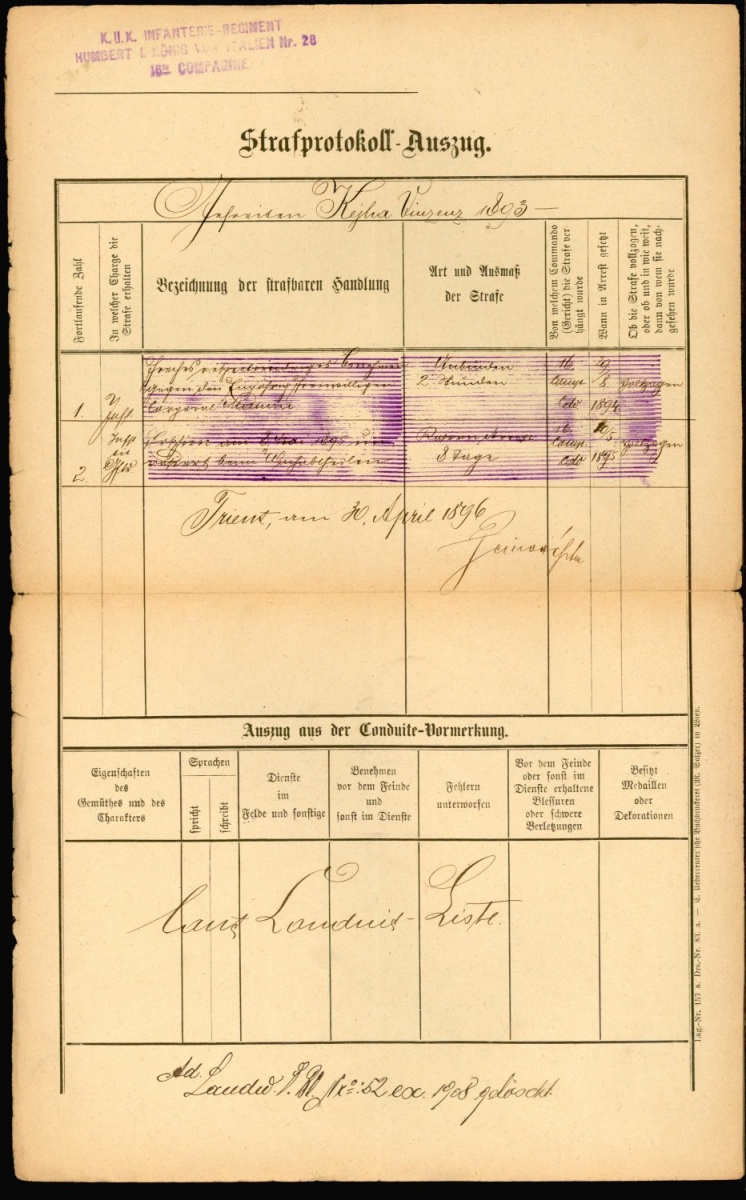 K.U.K. INFANTERIE-REGIMENT
HUMBERT I. KÖNIG VON ITALIEN Nr. 28
16te COMPAGNIE
Strafprotokoll-Auszug.
Gefreiten Kejha Vinzenz 1893 —
Fortlaufende Zahl
In welcher Charge die
Strafe erhalten
Bezeichnung der strafbaren Handlung
Art und Ausmaß
der Strafe
Von welchem Commando
(Gericht) die Strafe ver-
hängt wurde
Wann in Arrest gesetzt
Ob die Strafe vollzogen,
oder ob und in wie weit,
dann von wem sie nach-
gesehen wurde
1.
Inft
Benehmen
gegen den Einjährig Freiwilligen
Corporal
Anbinden
2 Stunden
16.
Comp.
Cdo
8
1894
vollzogen
2.
Inft
am 1895
beim
3 Tage
16.
Comp.
Cdo
10/5
1895
vollzogen
Trient, am 30. April 1896
Auszug aus der Conduite-Vormerkung.
Eigenschaften
des
Gemüthes und des
Charakters
Sprachen
spricht
schreibt
Dienste
im
Felde und sonstige
Benehmen
vor dem Feinde
und
sonst im Dienste
Fehlern
unterworfen
Vor dem Feinde
oder sonst im
Dienste erhaltene
Blessuren
oder schwere
Verletzungen
Besitzt
Medaillen
oder
Dekorationen
Conduit-Liste.
Ad. Landw. No: 52 ex. 1908 gelöscht.
Lag.-Nr. 157 a. Drs.-Nr. 83. a. — C. Ueberreuter'sche Buchdruckerei (M. Salzer) in Wien.